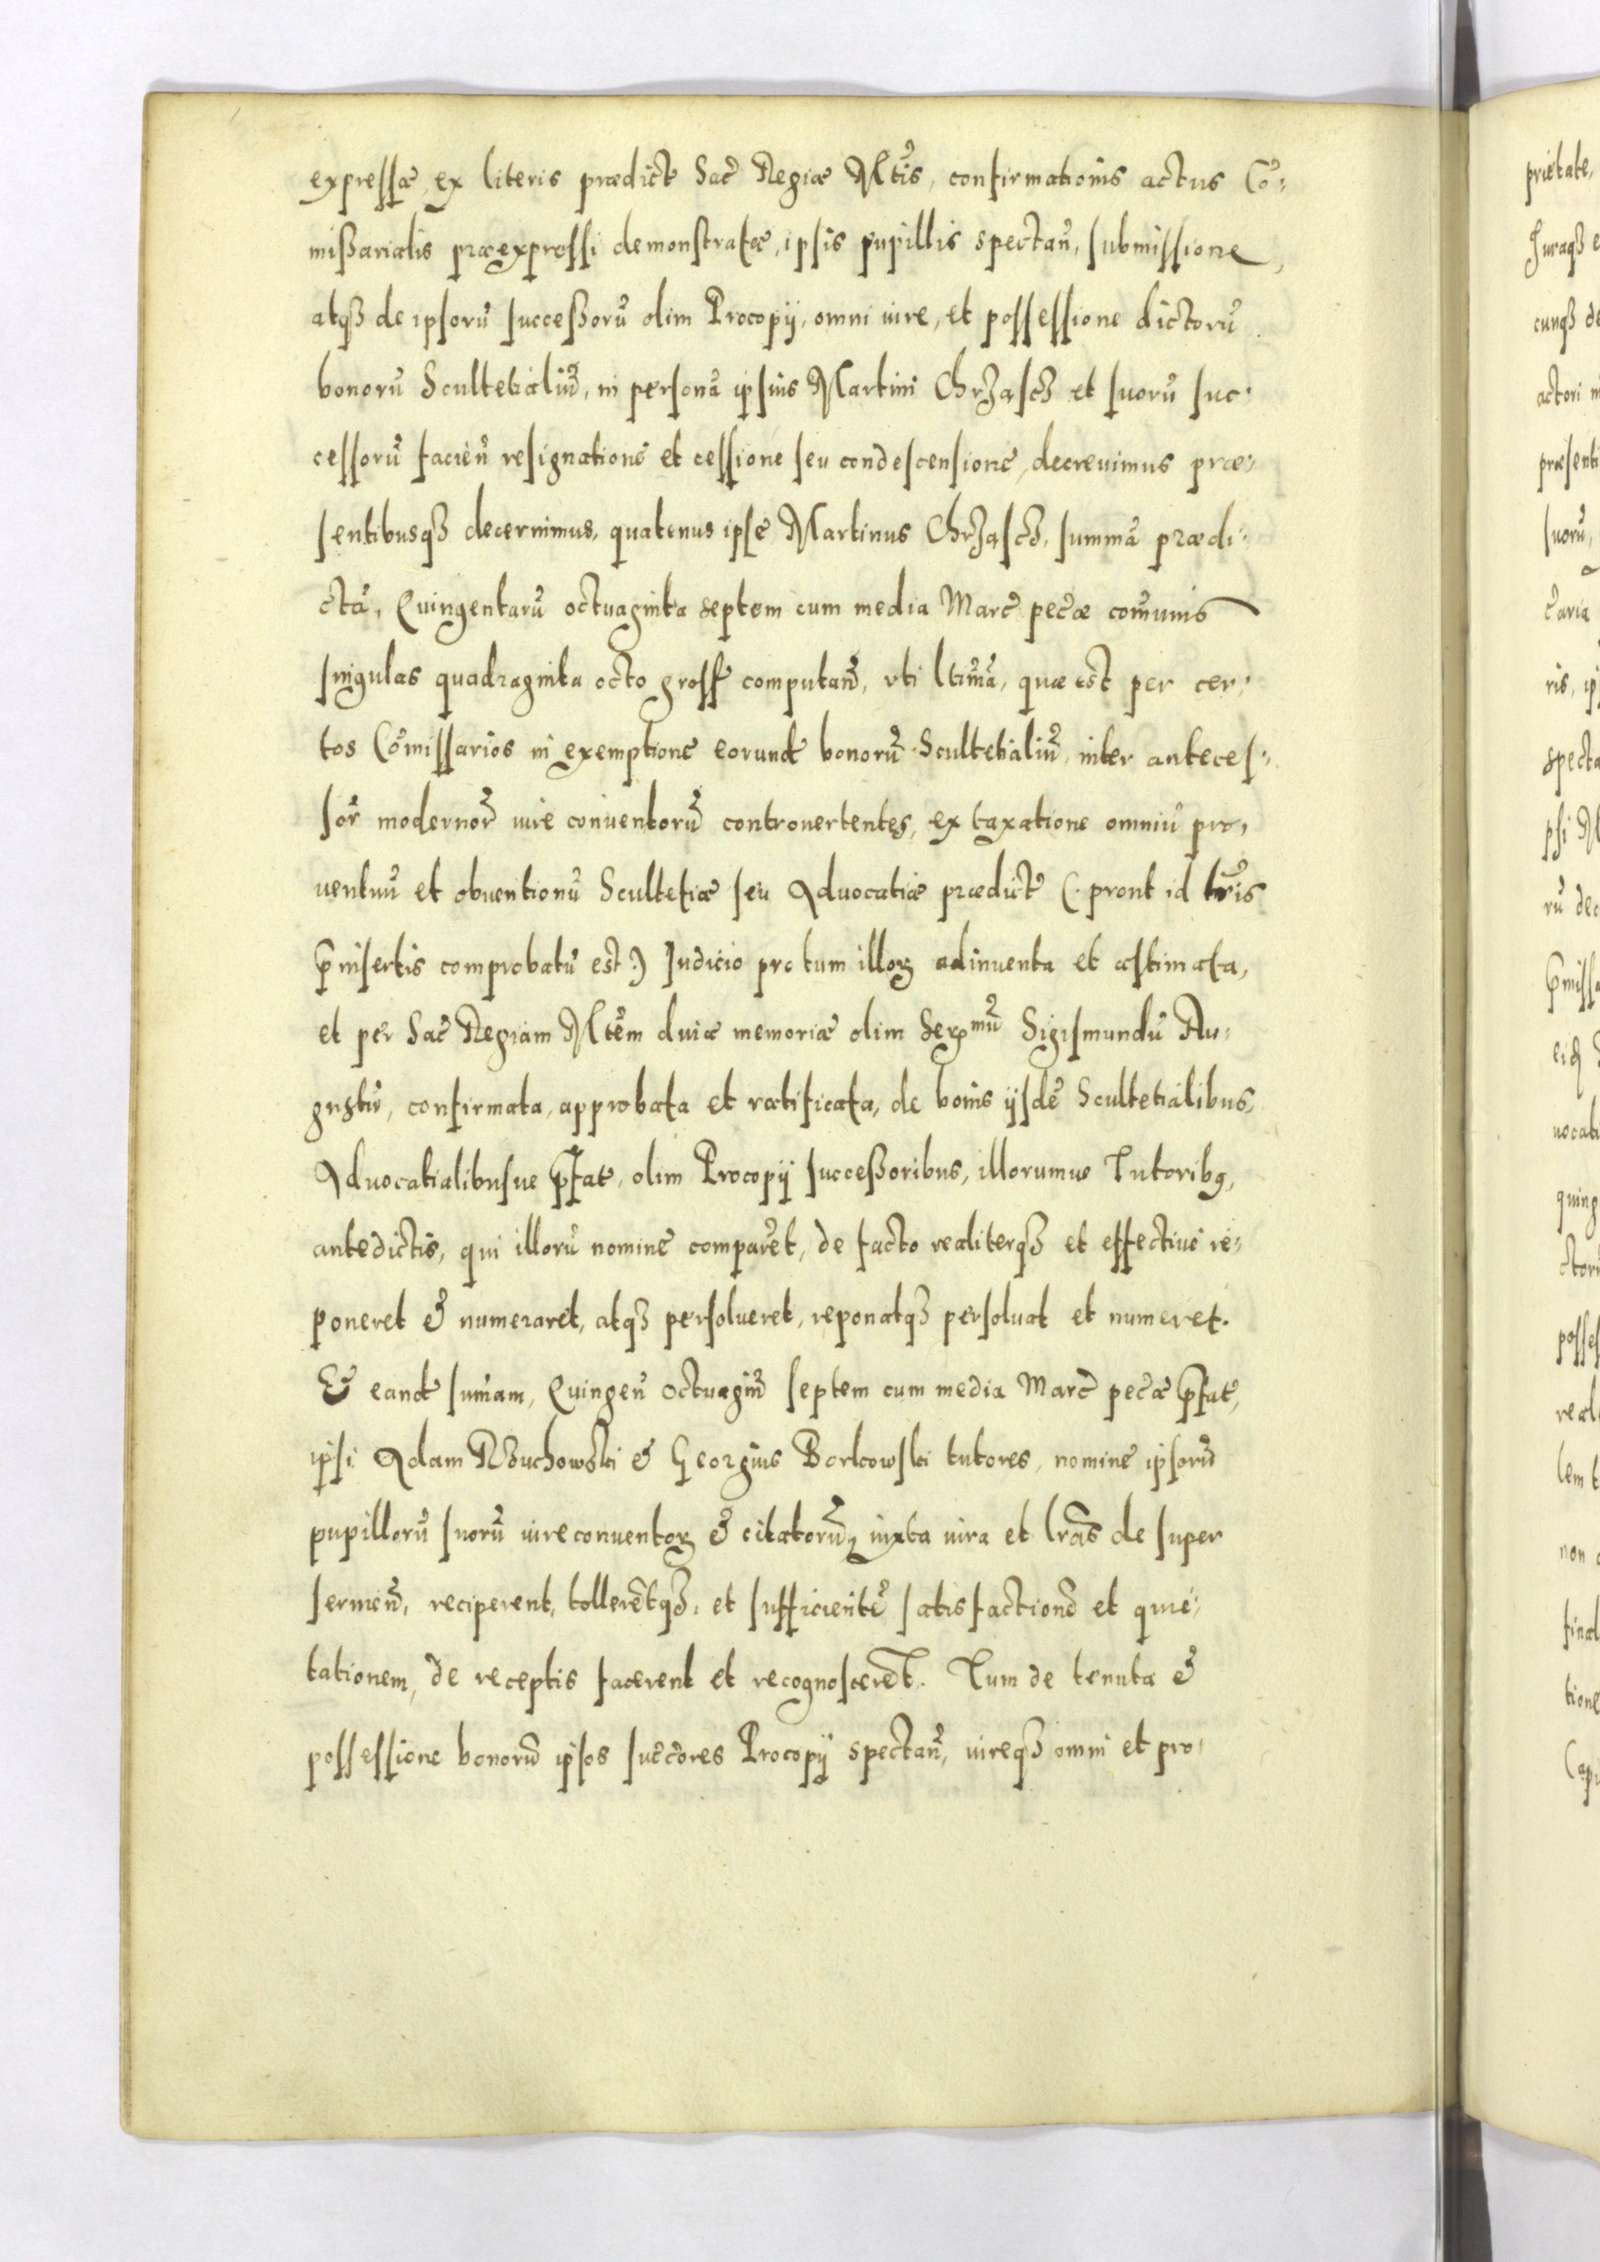 expressæ, ex literis prædict Sac Regiæ Mtis, confirmationis actus Cō-
mißarialis præexpressi demonstratæ, ipsis pupillis spectan, submissione,
atqȝ de ipsorū succeßorū olim Procopij, omni iure, et possessione dictorū
bonorū Scultetialiū, in personā ipsius Martini Chrząscȝ et suorū suc-
cessorū facien resignatione et cessione seu condescensione, decrevimus præ-
sentibusqȝ decernimus, quatenus ipse Martinus Chrząscȝ, summā prædi-
ctā, Quingentarū octuaginta septem cum media Marc pecæ comunis
singulas quadraginta octo gross computan, vti ltīmā, quæ est per cer-
tos Cōmissarios in exemptione eorund bonorū Scultetialiū, inter anteces-
sor modernor iure conventorū controvertentes, ex taxatione omniū pro-
uentuū et obventionū Scultetiæ seu Aduocatiæ prædict (: prout id lris
p̄insertis comprobatū est :) Judicio protum illoꝝ adinventa et æstimata,
et per Sac Regiam Mtēm diuæ memoriæ olim Serᵐū Sigismundū Au-
gustū, confirmata, approbata et ratificata, de bonis ijsdē Scultetialibus,
Aduocatialibusue p̄fat, olim Procopij succeßoribus, illorumue Tutoribꝯ,
antedictis, qui illorū nomine comparet, de facto realiterqȝ et effectiue re-
poneret & numeraret, atqȝ persolueret, reponatqȝ persoluat et numeret.
Et eand sumam, Quingen octuagin septem cum media Marc pecæ p̄fat,
ipsi Adam Rȝuchowski & Georgius Borkowski tutores, nomine ipsorū
pupillorū suorū iure conventoꝝ & citatorū, iuxta iura et lrās de super
servien, reciperent, tollerētqȝ, et sufficientē satisfactionē et quie-
tationem, de receptis facerent et recognoscerēt. Tum de tenuta &
possessione bonorū ipsos succōres Procopij spectan, iureqȝ omni et pro-